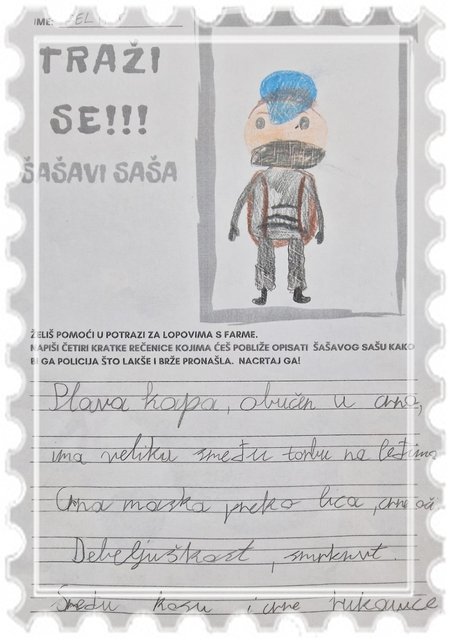 IME:
TRAŽI
SE!!!
ŠAŠAVI SAŠA
ŽELIŠ POMOĆI U POTRAZI ZA LOPOVIMA S FARME.
NAPIŠI ČETIRI KRATKE REČENICE KOJIMA ĆEŠ POBLIŽE OPISATI ŠAŠAVOG SAŠU KAKO
BI GA POLICIJA ŠTO LAKŠE I BRŽE PRONAŠLA. NACRTAJ GA!
Plava kapa, obučen u crno,
ima veliku smeđu torbu na leđima
Crna maska preko lica, crne oči
Debeljuškast, smrknut.
Smeđu kosu i crne rukavice